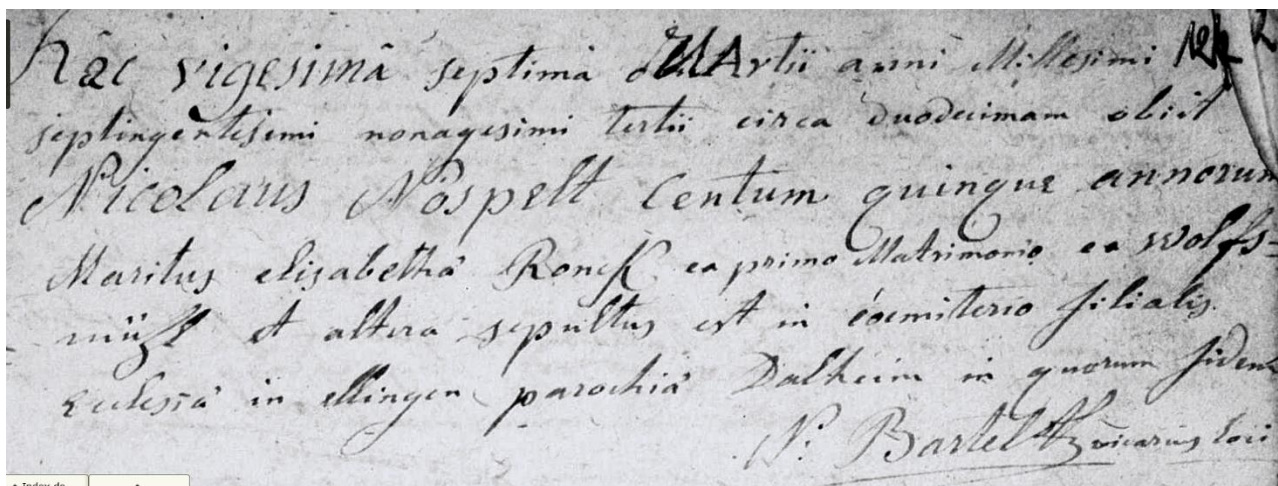 Hâc vigesimâ septima Martii anni Millesimi
septingentesimi nonagesimi tertii circa duodecimam obiit
Nicolaus Nospelt Centum quinque annorum
Maritus elisabetha Ronck ex primo Matrimonio ex Wolfs=
mühl et altera sepultus est in coemiterio filialis
Ecclesiâ in ellingen parochiâ Dalheim in quorum fidem
N: Bartel vicarius loci